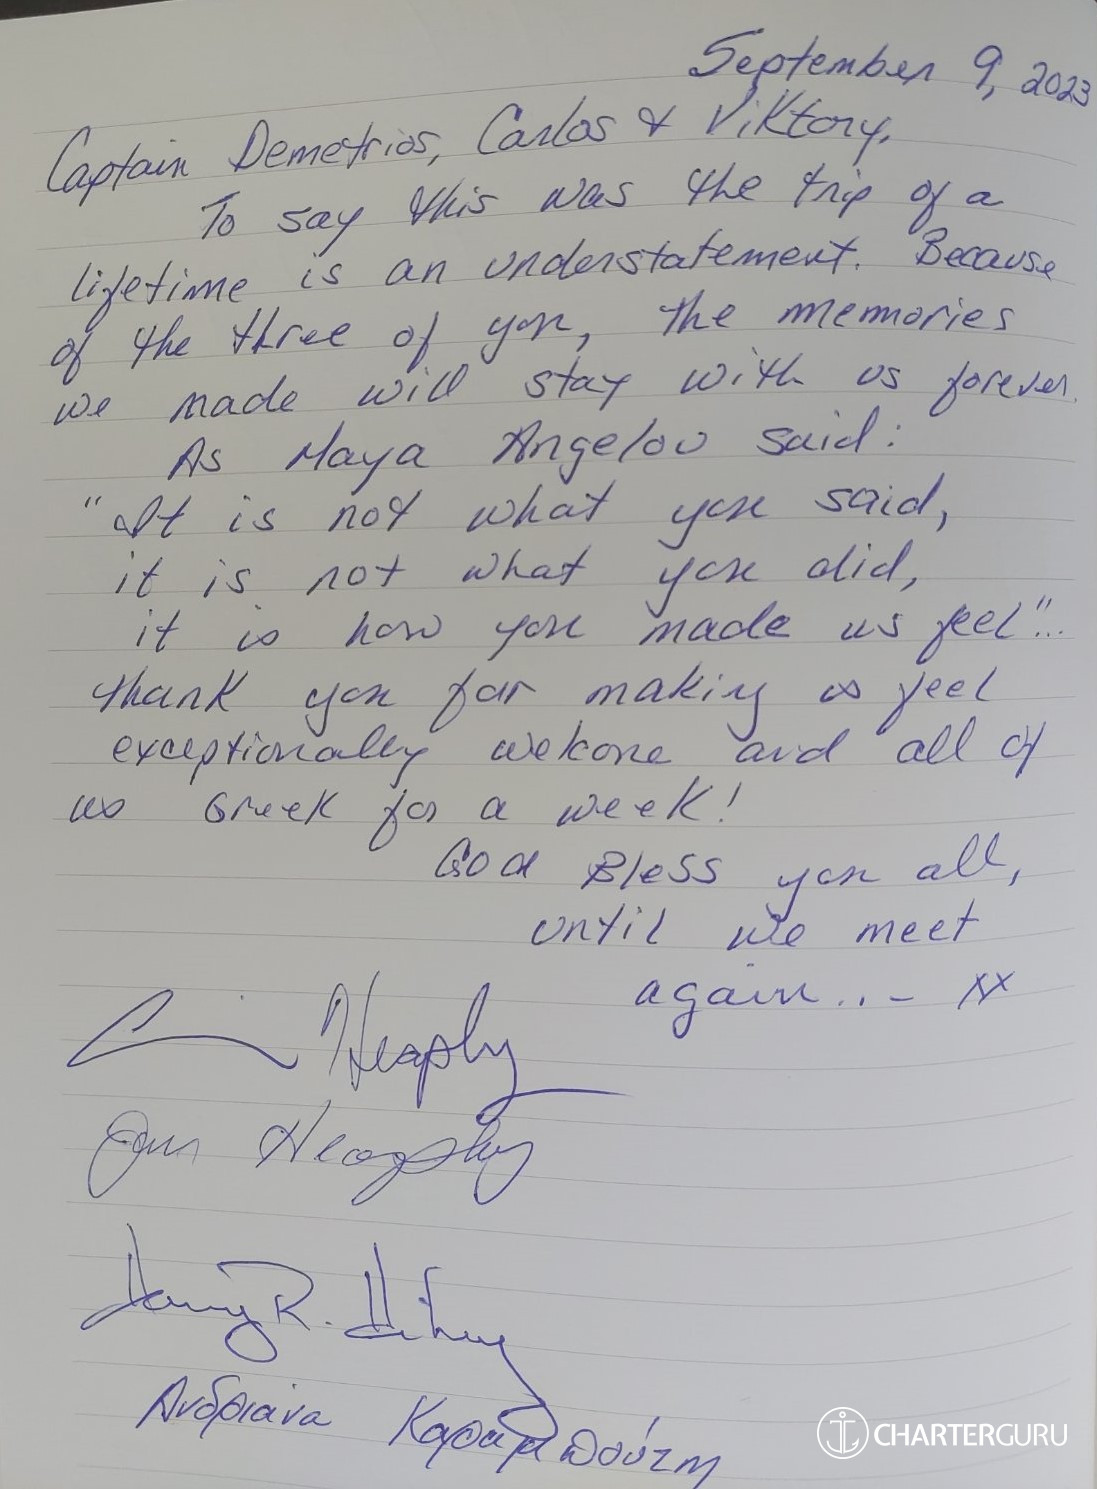 September 9, 2023
Captain Demetrios, Carlos & Viktory,
To say this was the trip of a
lifetime is an understatement. Because
of the three of you, the memories
we made will stay with us forever.
As Maya Angelou said:
"It is not what you said,
it is not what you did,
it is how you made us feel"...
thank you for making us feel
exceptionally welcome and all of
us Greek for a week!
God Bless you all,
until we meet
again... xx
Heaphy
Heaphy
R.
Ανδριάνα
CHARTERGURU